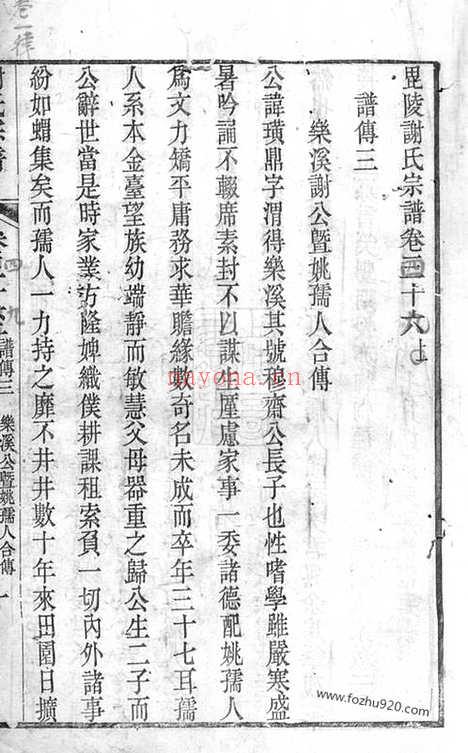 毘陵謝氏宗譜卷三十六
譜傳三
樂溪謝公暨姚孺人合傳
公諱璜鼎字渭得樂溪其號穆齋公長子也性嗜學雖嚴寒盛
暑吟誦不輟席素封不以謀生厪慮家事一委諸德配姚孺人
為文力矯平庸務求華贍緣數奇名未成而卒年三十七耳孺
人系本金臺望族幼端靜而敏慧父母器重之歸公生二子而
公辭世當是時家業方隆婢織僕耕課租索負一切內外諸事
紛如蝟集矣而孺人一力持之靡不井井數十年來田園日擴
譜傳三 樂溪公暨姚孺人合傳 一
nayona.cn
www.fozhu920.com